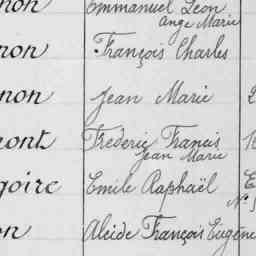 non Emmanuel Léon
Ange Marie
non François Charles
non Jean Marie 2
mont Fréderic Francis 1
Jean Marie
goire Emile Raphaël E
N°
on Alcide François Eugène